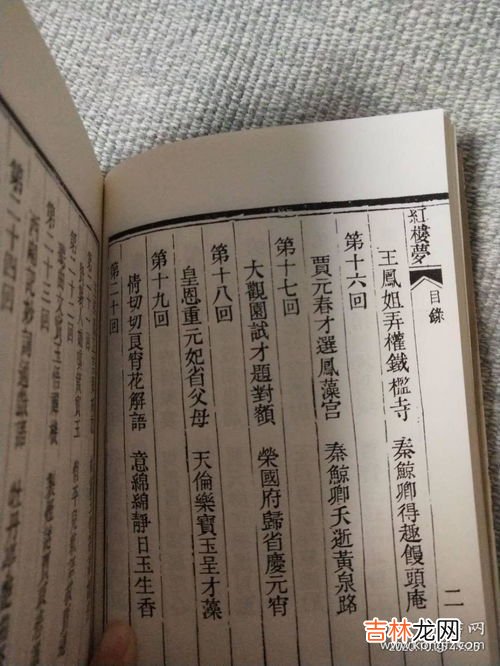 紅樓夢 目錄 二
王鳳姐弄權鐵檻寺 秦鯨卿得趣饅頭庵
第十六回
賈元春才選鳳藻宮 秦鯨卿夭逝黃泉路
第十七回
大觀園試才題對額 榮國府歸省慶元宵
第十八回
皇恩重元妃省父母 天倫樂寶玉呈才藻
第十九回
情切切良宵花解語 意綿綿靜日玉生香
第二十回
第二十三回
西廂記妙詞通戲語
第二十四回
吉林龙网